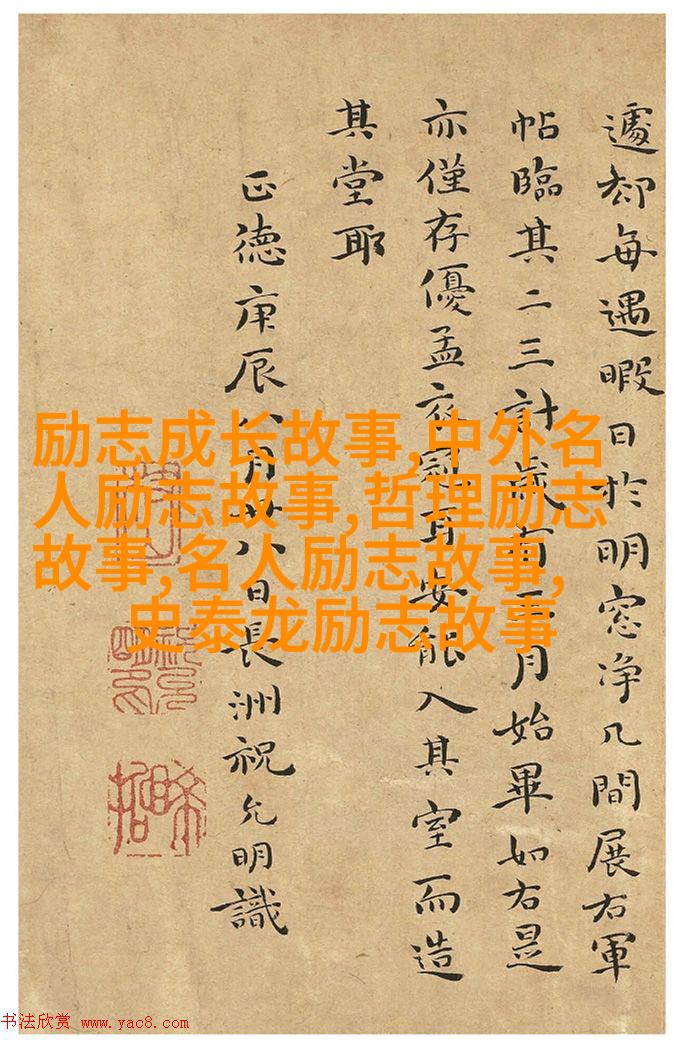 遽却每遇暇日於明窓净几間展右軍
帖臨其二三計歲有二月始畢如右是
亦僅存優孟衣冠耳安能入其室而造
其堂耶
正德庚辰八月廿八日長洲祝允明識
励志成长故事,中外名
人励志故事,哲理励志
故事,名人励志故事,
史泰龙励志故事
书法欣赏 www.yac8.com